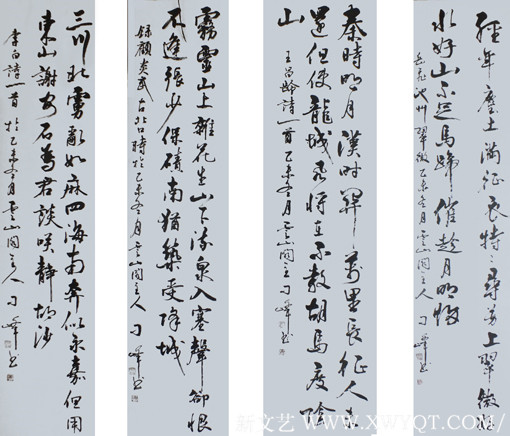 經年塵土滿征衣特〻尋芳上翠微好
水好山不足馬蹄催趁月明歸
岳飛池州翠微乙未冬月雲山閣主人刁峰書
秦時明月漢時關萬里長征人未
還但使龍城飛將在不教胡馬度陰
山
王昌齡詩一首乙未冬月雲山閣主刁峰書
霧靈山上雜花生山下流泉入塞聲卻恨
不逢張少保磧南猶築受降城
錄顧炎武古北口詩於乙未冬月雲山閣主人刁峰書
三川北虜亂如麻四海南奔似永嘉但用
東山謝安石為君談笑靜胡沙
李白詩一首於乙未冬月雲山閣主人刁峰書
新文艺 WWW.XWYQT.COM